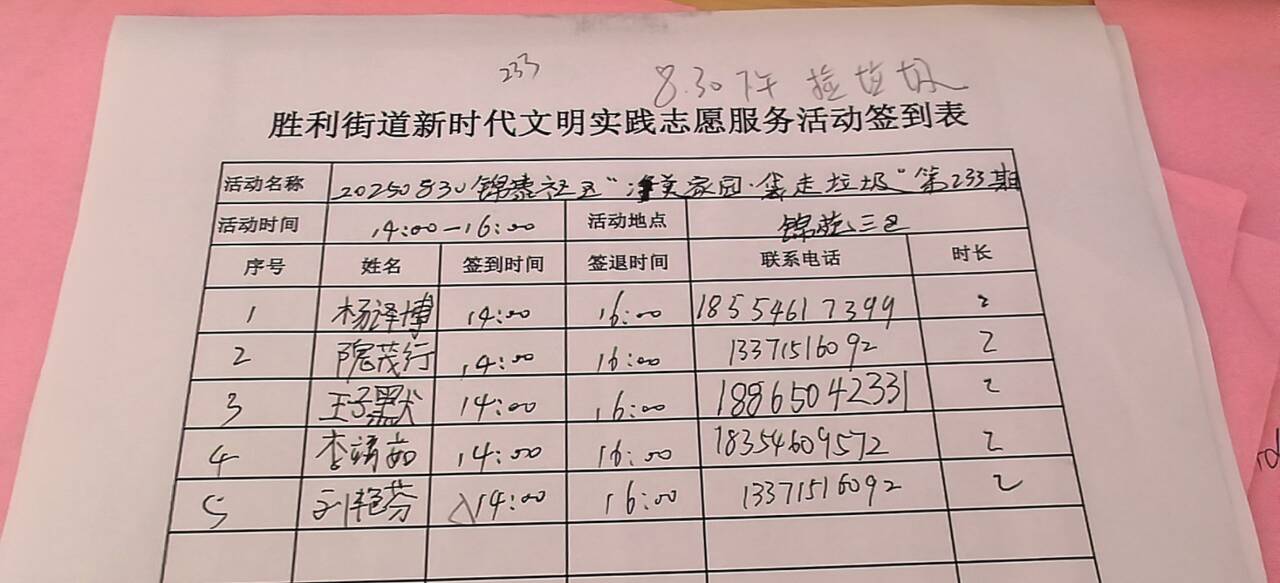 233
8.30下午 捡垃圾
胜利街道新时代文明实践志愿服务活动签到表
活动名称 20250830锦泰社区"净美家园·袋走垃圾"第233期
活动时间 14:00-16:00 活动地点 锦苑三区
序号 姓名 签到时间 签退时间 联系电话 时长
1 杨译博 14:00 16:00 18554617399 2
2 隗茂行 14:00 16:00 13371516092 2
3 王子默 14:00 16:00 18865042331 2
4 李靖茹 14:00 16:00 18354609572 2
5 刘艳芬 14:00 16:00 13371516092 2